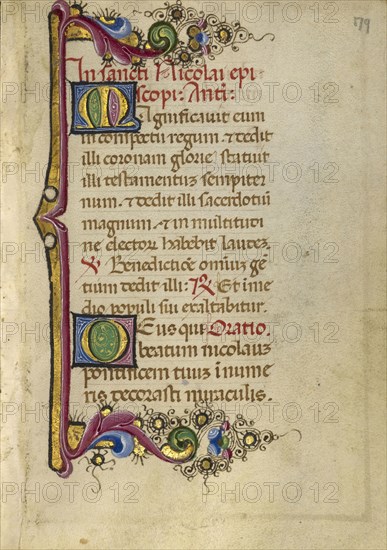 79
In sancti Nicolai epi
scopi: Anti:
Magnificauit eum
in conspectu regum. ⁊ dedit
illi coronam glorie statuit
illi testamentuz sempiter
num. ⁊ dedit illi sacerdotiū
magnum. ⁊ in multitudi
ne electorū habebit laudez.
℣ Benedictiōē omiuz gē
tium dedit illi: ℟ Et i me
dio populi sui exaltabitur.
Deus qui Oratio.
beatum nicolauz
pontificem tuuz inume
ris decorasti miraculis.